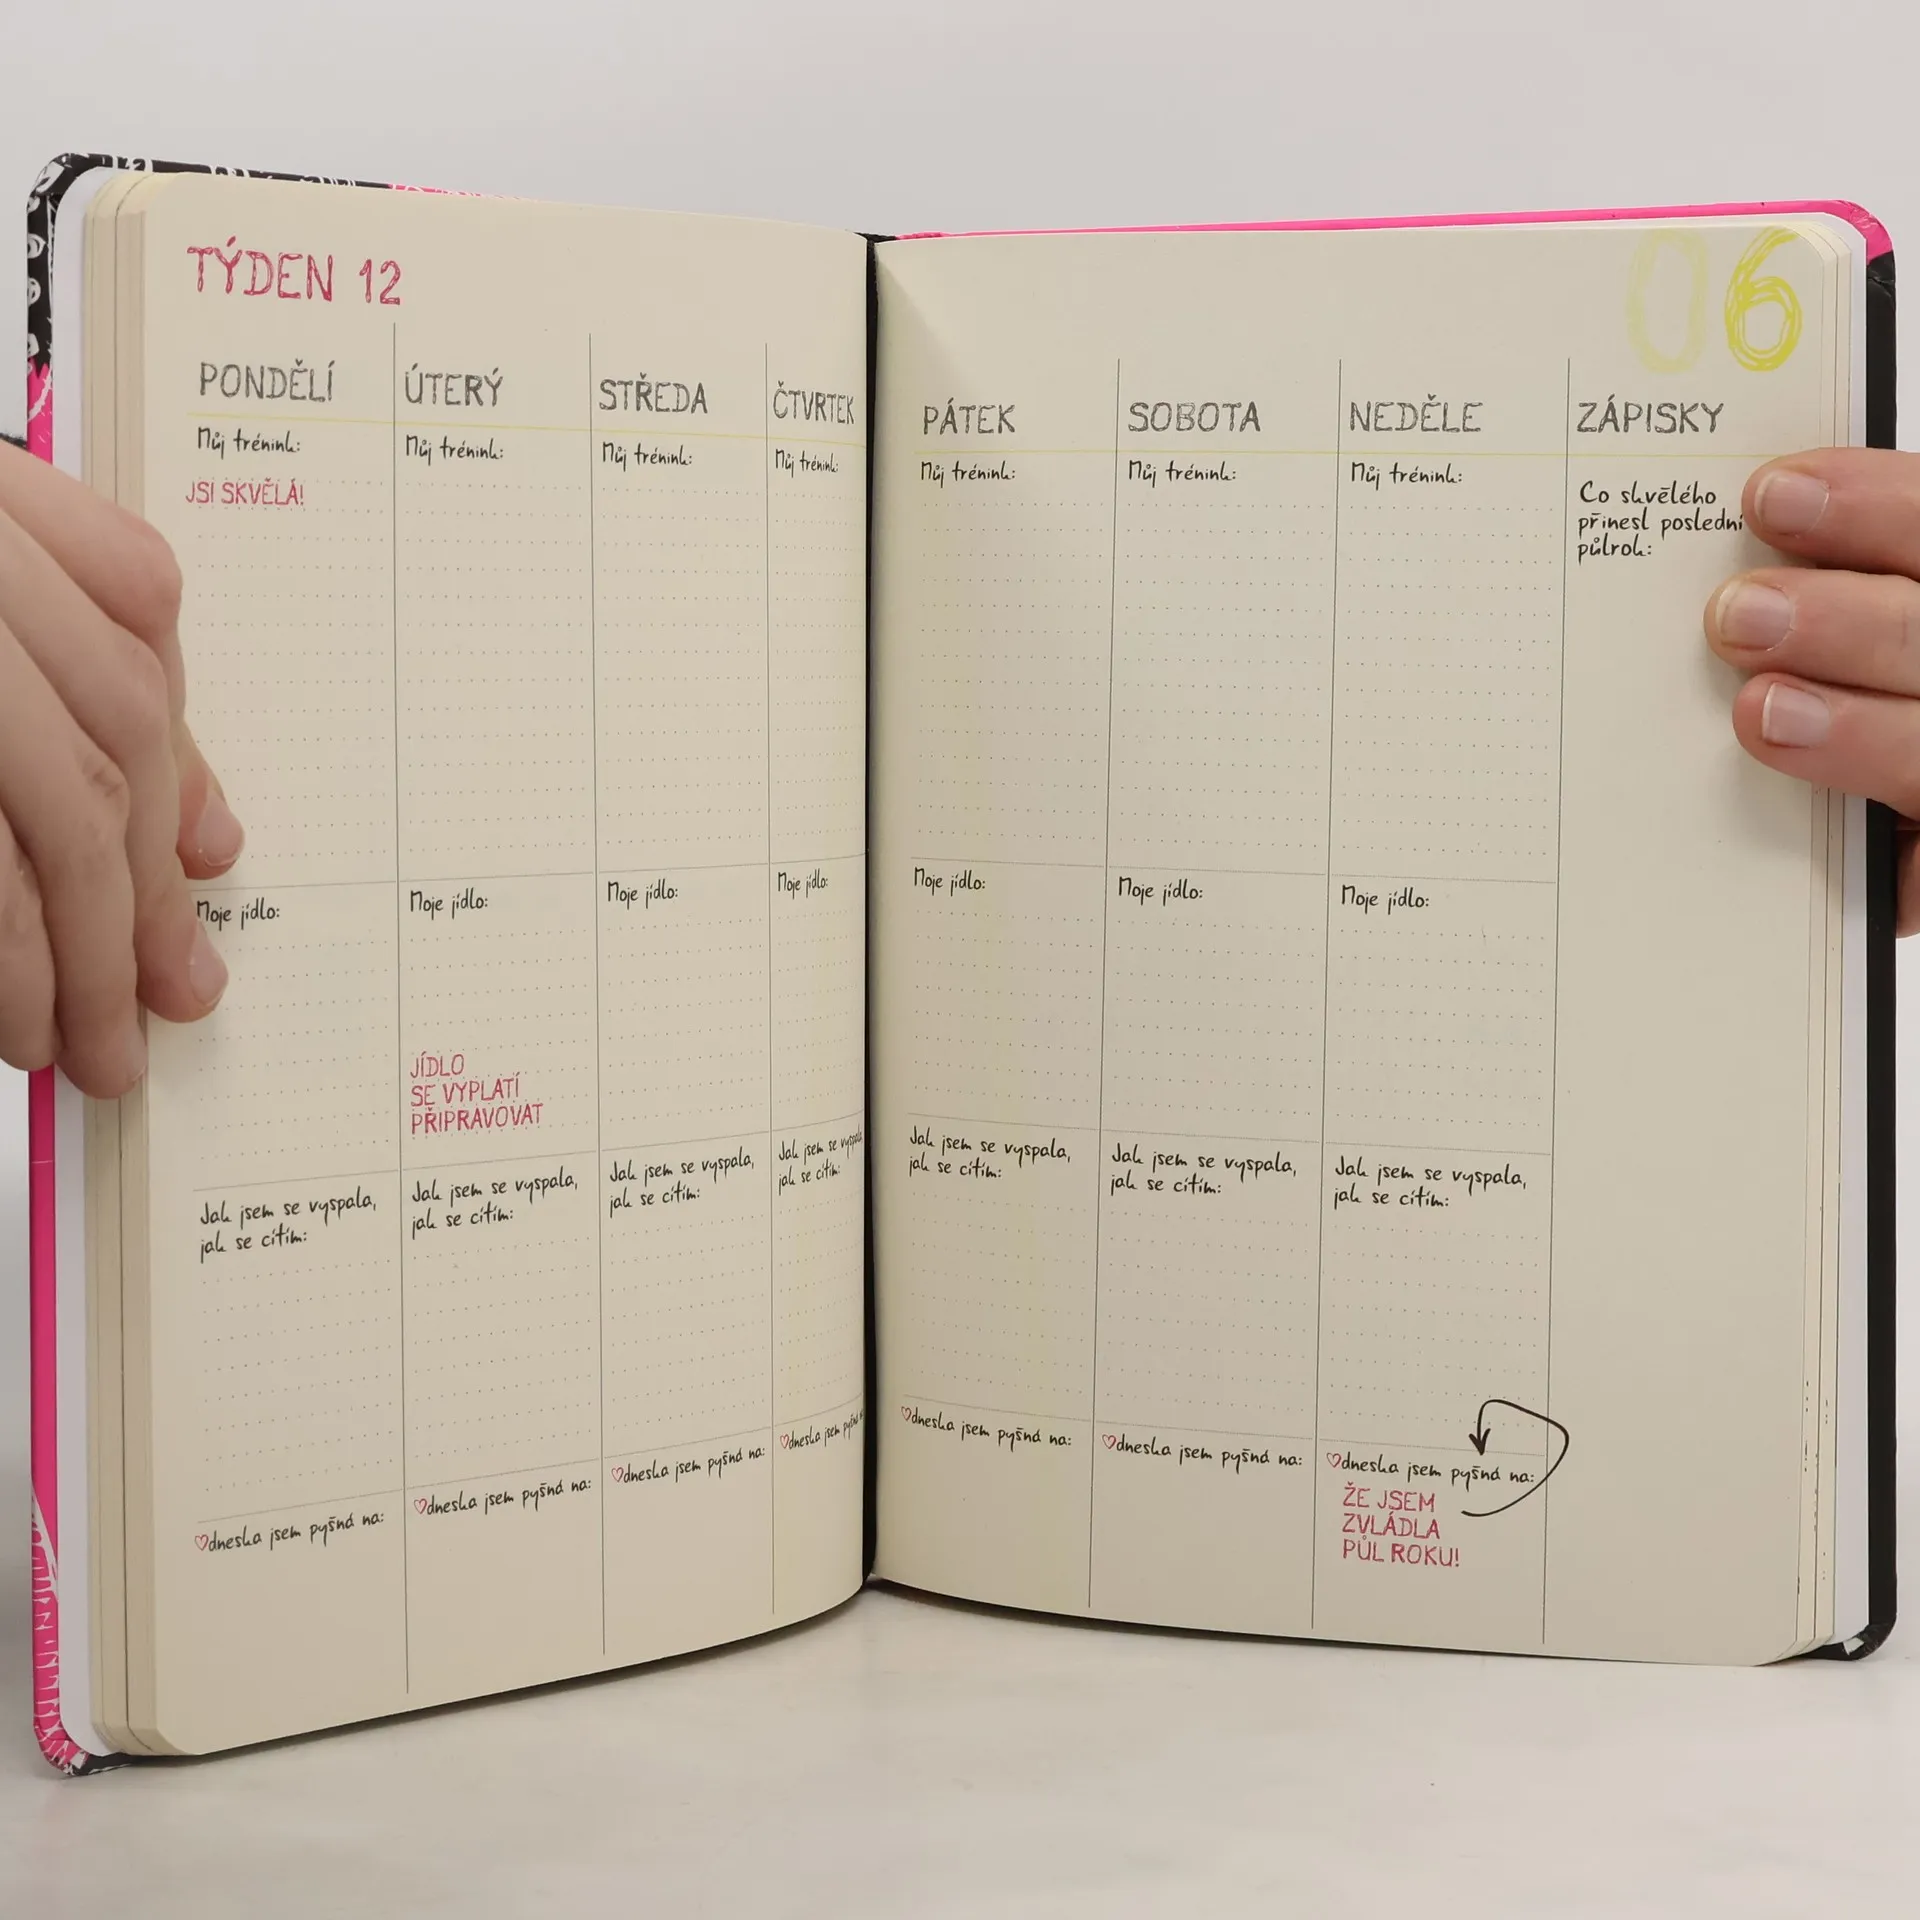 TÝDEN 12
PONDĚLÍ
Můj trénink:
JSI SKVĚLÁ!
Moje jídlo:
Jak jsem se vyspala,
jak se cítím:
dneska jsem pyšná na:
ÚTERÝ
Můj trénink:
Moje jídlo:
JÍDLO
SE VYPLATÍ
PŘIPRAVOVAT
Jak jsem se vyspala,
jak se cítím:
dneska jsem pyšná na:
STŘEDA
Můj trénink:
Moje jídlo:
Jak jsem se vyspala,
jak se cítím:
dneska jsem pyšná na:
ČTVRTEK
Můj trénink:
Moje jídlo:
Jak jsem se vyspala
jak se cítím:
dneska jsem pyšná
06
PÁTEK
Můj trénink:
Moje jídlo:
Jak jsem se vyspala,
jak se cítím:
dneska jsem pyšná na:
SOBOTA
Můj trénink:
Moje jídlo:
Jak jsem se vyspala,
jak se cítím:
dneska jsem pyšná na:
NEDĚLE
Můj trénink:
Moje jídlo:
Jak jsem se vyspala,
jak se cítím:
dneska jsem pyšná na:
ŽE JSEM
ZVLÁDLA
PŮL ROKU!
ZÁPISKY
Co skvělého
přinesl poslední
půlrok: